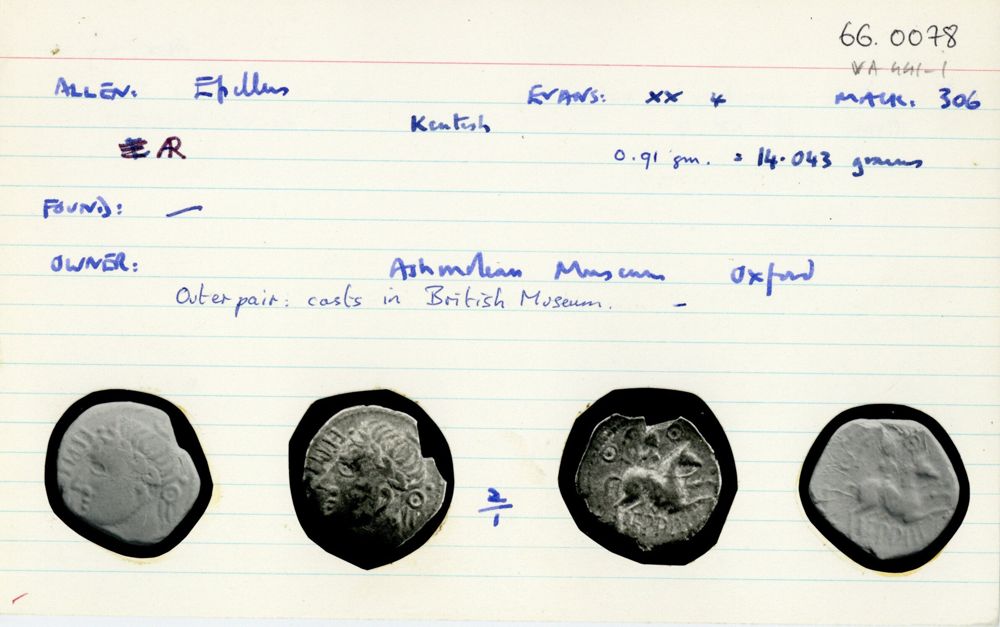 66.0078
VA 441-1
ALLEN: Epillus EVANS: XX 4 MACK. 306
Kentish
AR 0.91 gm. = 14.043 grains
FOUND: —
OWNER: Ashmolean Museum Oxford
Outer pair: casts in British Museum. –
2/1